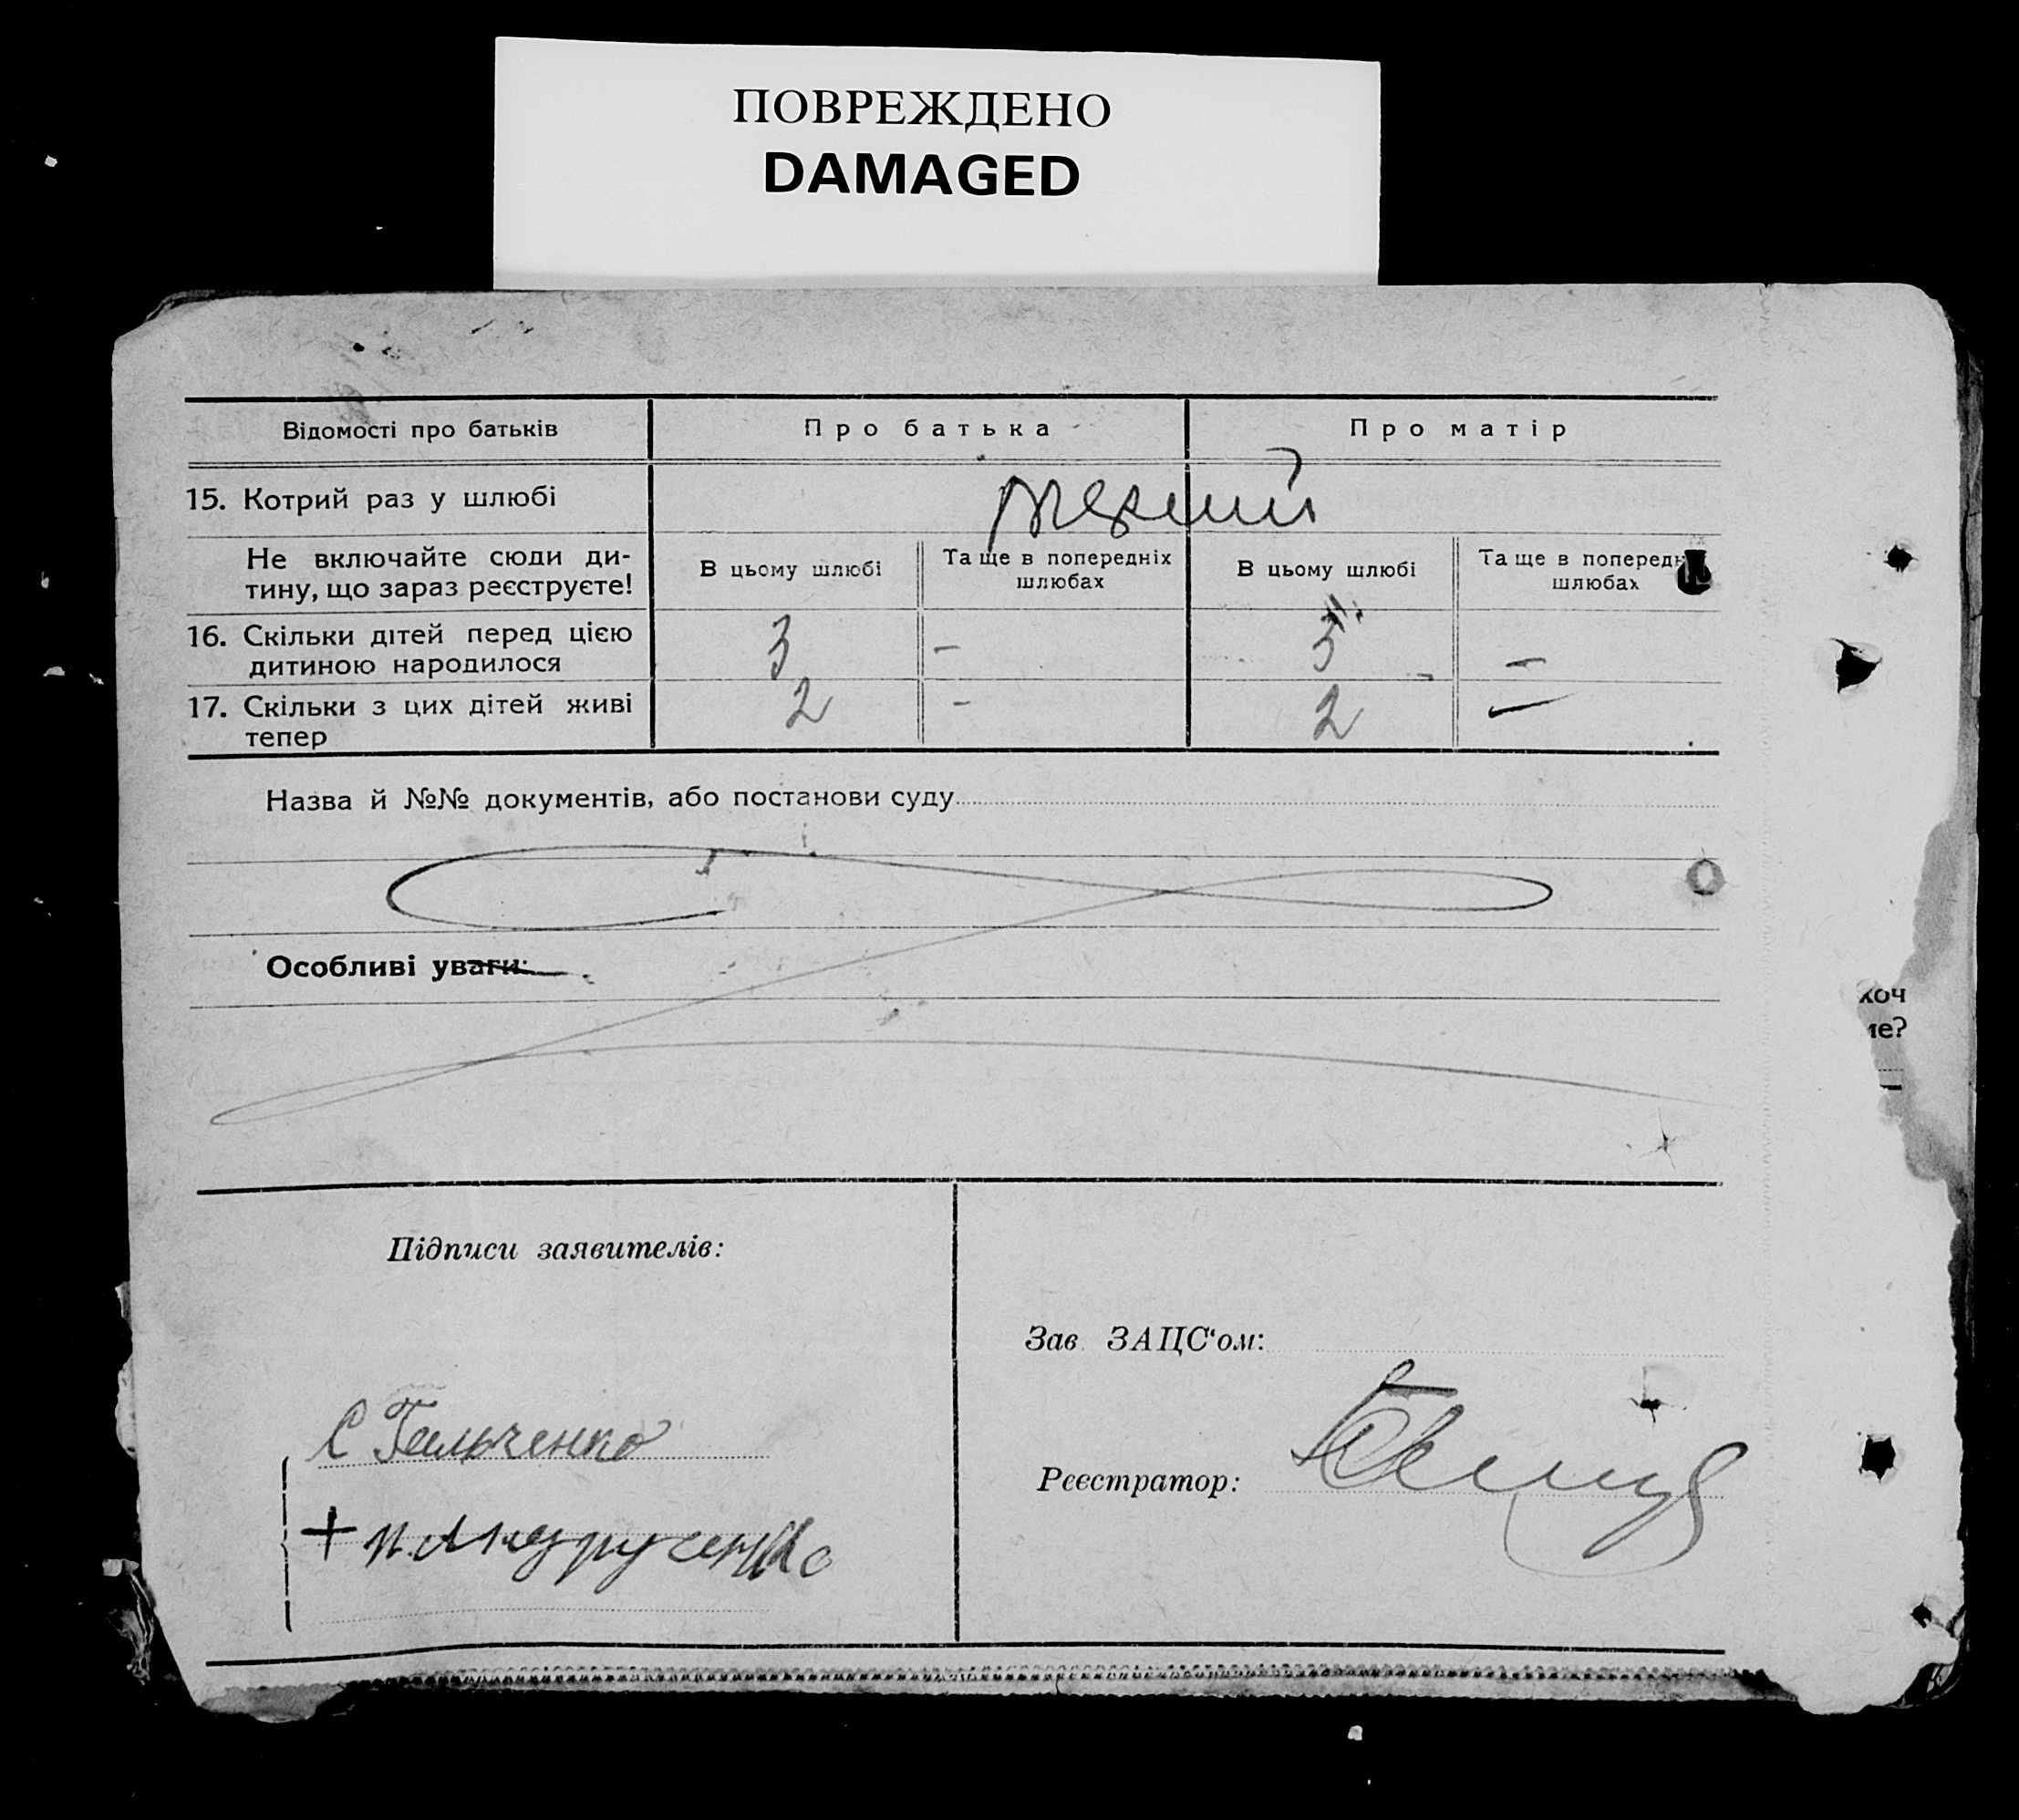 ПОВРЕЖДЕНО
DAMAGED
Відомості про батьків
Про батька
Про матір
15. Котрий раз у шлюбі
Не включайте сюди ди-
тину, що зараз реєструєте!
В цьому шлюбі
Та ще в попередніх
шлюбах
В цьому шлюбі
Та ще в попередн
шлюбах
16. Скільки дітей перед цією
дитиною народилося
3
-
3
-
17. Скільки з цих дітей живі
тепер
2
-
2
-
Назва й №№ документів, або постанови суду
Особливі уваги:
хоч
не?
Підписи заявителів:
Зав ЗАЦС‘ом:
С Гальченко
Реєстратор:
+ И. Андрусенко